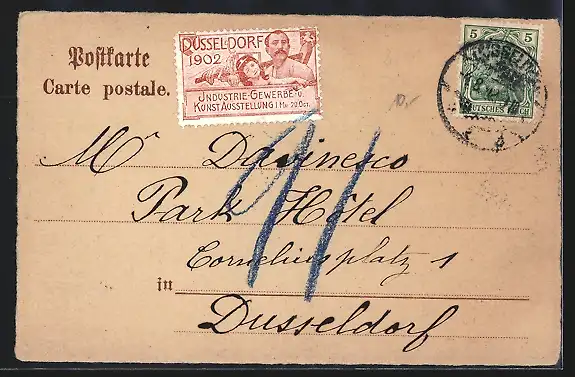 Postkarte
Carte postale.
DÜSSELDORF
1902
INDUSTRIE-GEWERBE-U.
KUNSTAUSSTELLUNG 1 Mai 20 Oct.
5 5
DEUTSCHES REICH
Mr Davinesco
Park Hôtel
Corneliusplatz 1
in
Dusseldorf